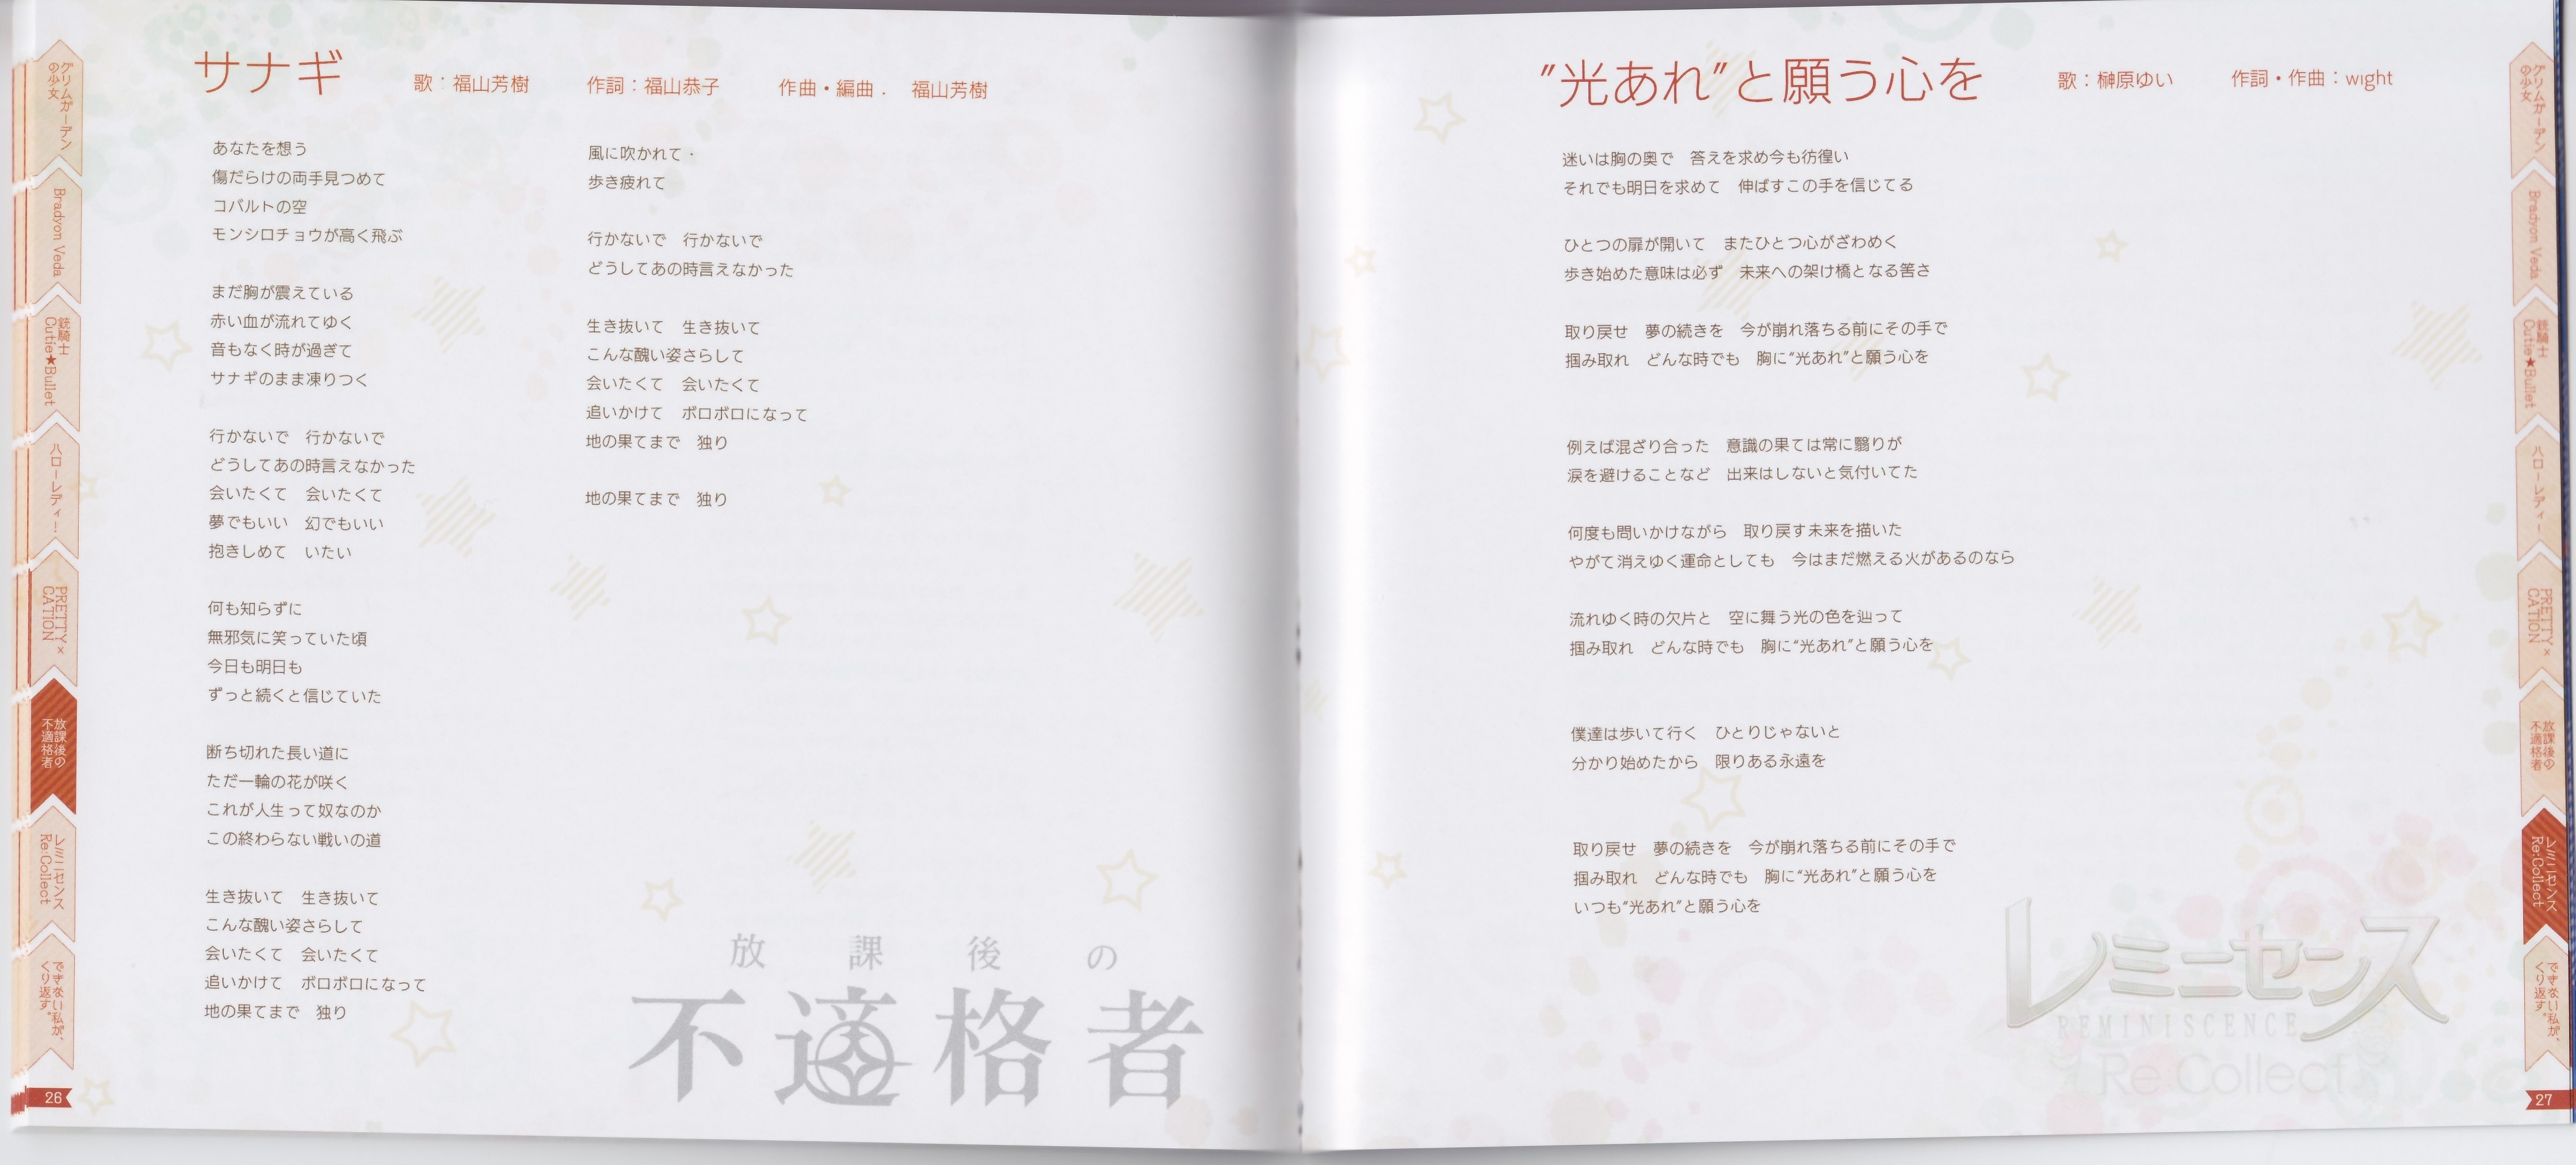 グリムガーデン
の少女
Bradyon Veda
銃騎士
Cutie★Bullet
ハローレディ!
PRETTY×
CATION
放課後の
不適格者
レミニセンス
Re:Collect
できない私が、
くり返す。
26
サナギ 歌:福山芳樹 作詞:福山恭子 作曲・編曲. 福山芳樹
あなたを想う
傷だらけの両手見つめて
コバルトの空
モンシロチョウが高く飛ぶ
まだ胸が震えている
赤い血が流れてゆく
音もなく時が過ぎて
サナギのまま凍りつく
行かないで 行かないで
どうしてあの時言えなかった
会いたくて 会いたくて
夢でもいい 幻でもいい
抱きしめて いたい
何も知らずに
無邪気に笑っていた頃
今日も明日も
ずっと続くと信じていた
断ち切れた長い道に
ただ一輪の花が咲く
これが人生って奴なのか
この終わらない戦いの道
生き抜いて 生き抜いて
こんな醜い姿さらして
会いたくて 会いたくて
追いかけて ボロボロになって
地の果てまで 独り
風に吹かれて・
歩き疲れて
行かないで 行かないで
どうしてあの時言えなかった
生き抜いて 生き抜いて
こんな醜い姿さらして
会いたくて 会いたくて
追いかけて ボロボロになって
地の果てまで 独り
地の果てまで 独り
放課後の
不適格者
"光あれ"と願う心を 歌:榊原ゆい 作詞・作曲:wight
迷いは胸の奥で 答えを求め今も彷徨い
それでも明日を求めて 伸ばすこの手を信じてる
ひとつの扉が開いて またひとつ心がざわめく
歩き始めた意味は必ず 未来への架け橋となる筈さ
取り戻せ 夢の続きを 今が崩れ落ちる前にその手で
掴み取れ どんな時でも 胸に"光あれ"と願う心を
例えば混ざり合った 意識の果ては常に翳りが
涙を避けることなど 出来はしないと気付いてた
何度も問いかけながら 取り戻す未来を描いた
やがて消えゆく運命としても 今はまだ燃える火があるのなら
流れゆく時の欠片と 空に舞う光の色を辿って
掴み取れ どんな時でも 胸に"光あれ"と願う心を
僕達は歩いて行く ひとりじゃないと
分かり始めたから 限りある永遠を
取り戻せ 夢の続きを 今が崩れ落ちる前にその手で
掴み取れ どんな時でも 胸に"光あれ"と願う心を
いつも"光あれ"と願う心を
レミニセンス
REMINISCENCE
Re:Collect
グリムガーデン
の少女
Bradyon Veda
銃騎士
Cutie★Bullet
ハローレディ!
PRETTY×
CATION
放課後の
不適格者
レミニセンス
Re:Collect
できない私が、
くり返す。
27